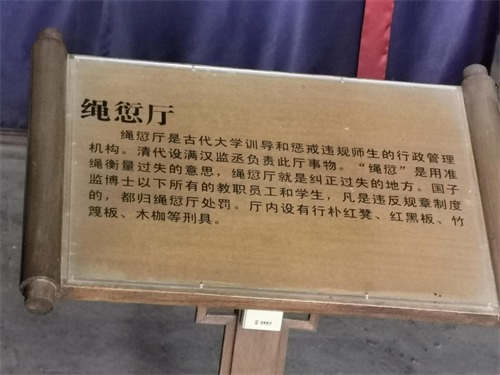 绳愆厅
绳愆厅是古代大学训导和惩戒违规师生的行政管理
机构。清代设满汉监丞负责此厅事物。“绳愆”是用准
绳衡量过失的意思，绳愆厅就是纠正过失的地方。国子
监博士以下所有的教职员工和学生，凡是违反规章制度
的，都归绳愆厅处罚。厅内设有行朴红凳、红黑板、竹
篾板、木枷等刑具。